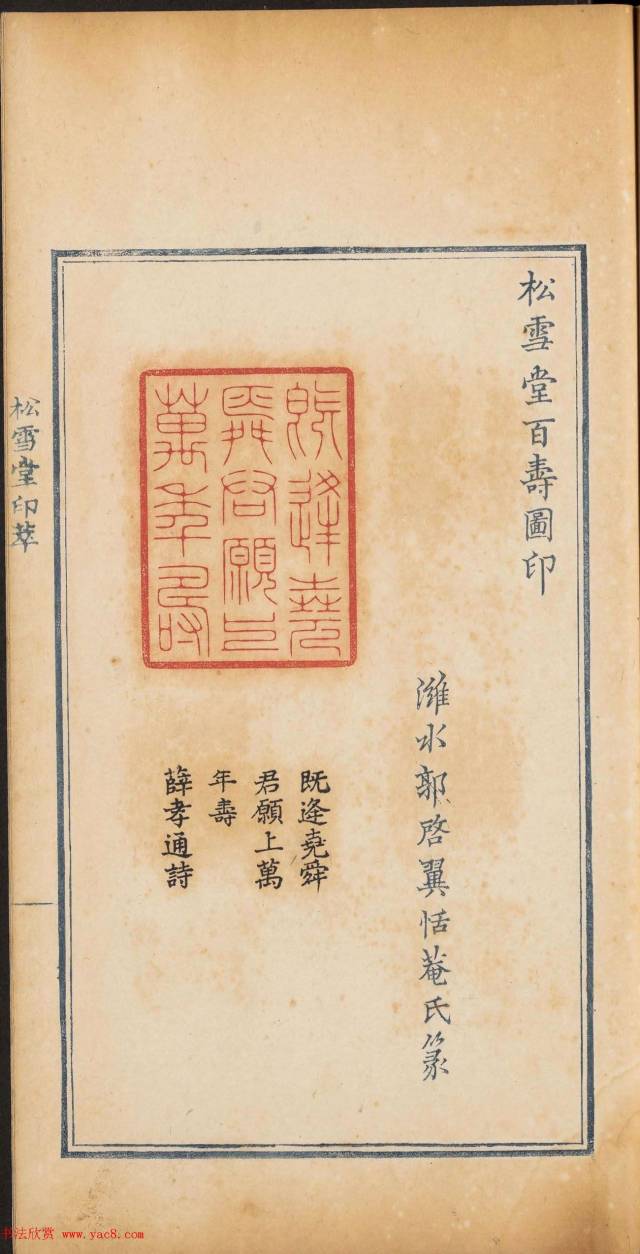 松雪堂百壽圖印
濰水郭啓翼恬菴氏篆
既逢堯
舜君願上
萬年壽
既逢堯舜
君願上萬
年壽
薛孝通詩
松雪堂印萃
书法欣赏 www.yac8.com